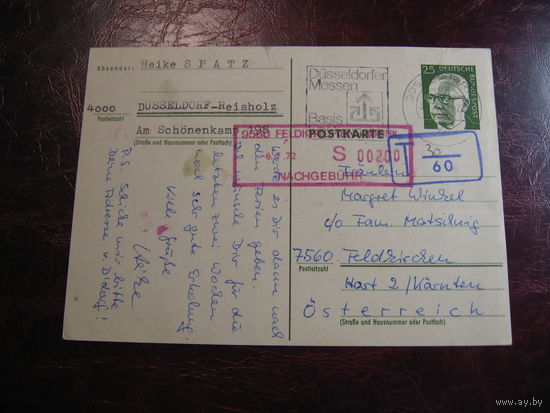 Absender: Heike SPATZ
4000 DÜSSELDORF-Reisholz
Postleitzahl
Am Schönenkamp 195
(Straße und Hausnummer oder Postfach)
Düsseldorfer
Messen
Basis
25 DEUTSCHE BUNDESPOST
POSTKARTE
9560 FELDKIRCHEN
72 S 00200
NACHGEBÜHR
T 30
60
Fräulein
Margret Winkel
c/o Fam. Matschnig
7560 Feldkirchen
Postleitzahl
Hart 2 / Kärnten
Österreich
(Straße und Hausnummer oder Postfach)
werde es Dir dann nach
den Ferien geben.
Ich wünsche Dir für die
letzten zwei Wochen
noch sehr gute Erholung!
Viele Grüße
Heike
P.S. Schicke mir bitte
Deine Adresse v. D'dorf!
www.ay.by